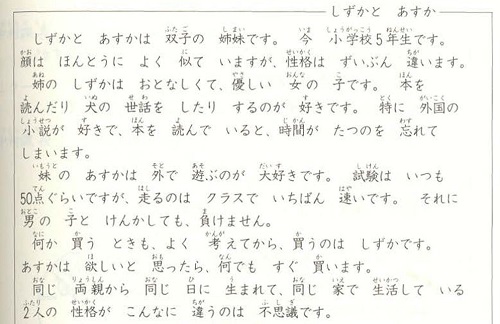 しずかと あすか
しずかと あすかは 双子の 姉妹です。 今 小学校5年生です。
顔は ほんとうに よく 似て いますが、性格は ずいぶん 違います。
姉の しずかは おとなしくて、優しい 女の 子です。 本を
読んだり 犬の 世話を したり するのが 好きです。 特に 外国の
小説が 好きで、本を 読んで いると、時間が たつのを 忘れて
しまいます。
妹の あすかは 外で 遊ぶのが 大好きです。 試験は いつも
50点ぐらいですが、走るのは クラスで いちばん 速いです。 それに
男の 子と けんかしても、負けません。
何か 買う ときも、よく 考えてから、買うのは しずかです。
あすかは 欲しいと 思ったら、何でも すぐ 買います。
同じ 両親から 同じ 日に 生まれて、同じ 家で 生活して いる
2人の 性格が こんなに 違うのは 不思議です。